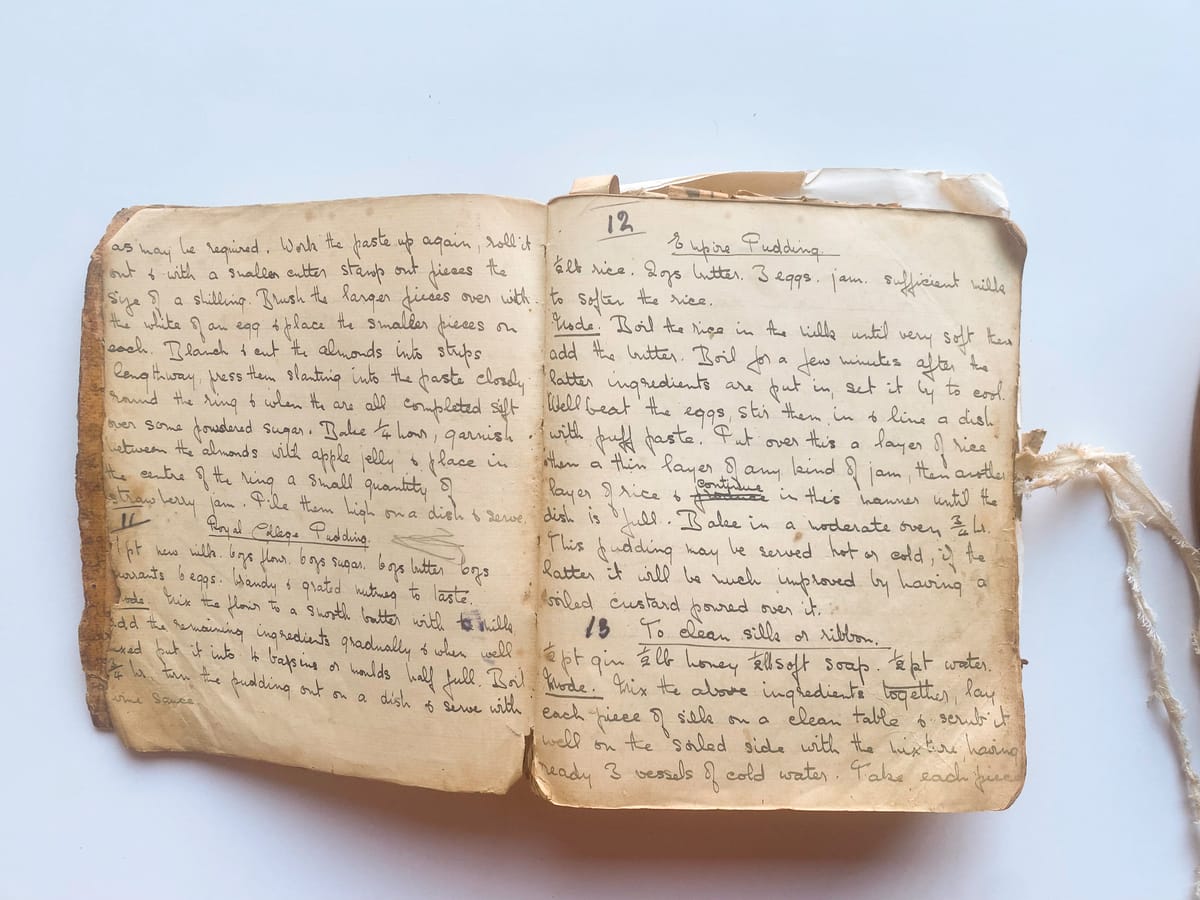 as may be required. Work the paste up again, roll it
out & with a smaller cutter stamp out pieces the
size of a shilling. Brush the larger pieces over with
the white of an egg & place the smaller pieces on
each. Blanch & cut the almonds into strips
lengthway, press them slanting into the paste closely
round the ring & when the are all completed sift
over some powdered sugar. Bake ¼ hour, garnish
between the almonds with apple jelly & place in
the centre of the ring a small quantity of
strawberry jam. Pile them high on a dish & serve.
11
Royal College Pudding.
1 pt new milk. 6ozs flour. 6ozs sugar. 6ozs butter 6ozs
currants 6 eggs. brandy & grated nutmeg to taste.
Mode. Mix the flour to a smooth batter with milk
add the remaining ingredients gradually & when well
mixed put it into 4 basins or moulds half full. Boil
¾ hr. turn the pudding out on a dish & serve with
wine sauce
12
Empire Pudding.
½lb rice. 2ozs butter. 3 eggs. jam. sufficient milk
to softer the rice.
Mode. Boil the rice in the milk until very soft then
add the butter. Boil for a few minutes after the
latter ingredients are put in, set it by to cool.
Well beat the eggs, stir them in & line a dish
with puff paste. Put over this a layer of rice
then a thin layer of any kind of jam, then another
layer of rice & continue in this manner until the
dish is full. Bake in a moderate oven ¾ hr.
This pudding may be served hot or cold, if the
latter it will be much improved by having a
boiled custard poured over it.
13 To clean silk or ribbon.
½ pt gin ½ lb honey ½lb soft soap. ½ pt water.
Mode. Mix the above ingredients together, lay
each piece of silk on a clean table & scrub it
well on the soiled side with the mixture having
ready 3 vessels of cold water. Take each piece